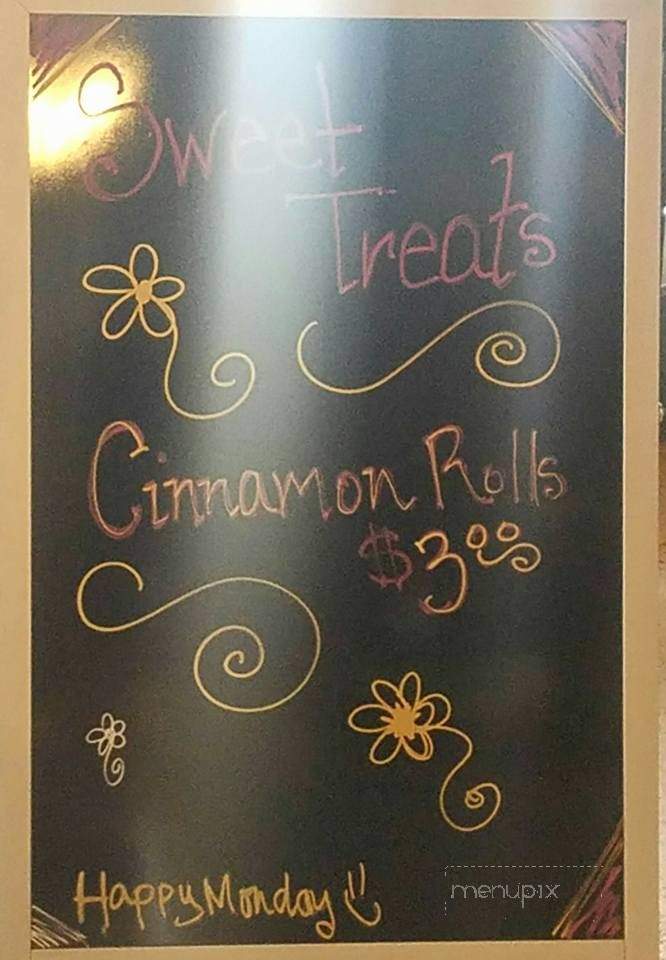 Sweet
Treats
Cinnamon Rolls
$3.00
Happy Monday
menupix